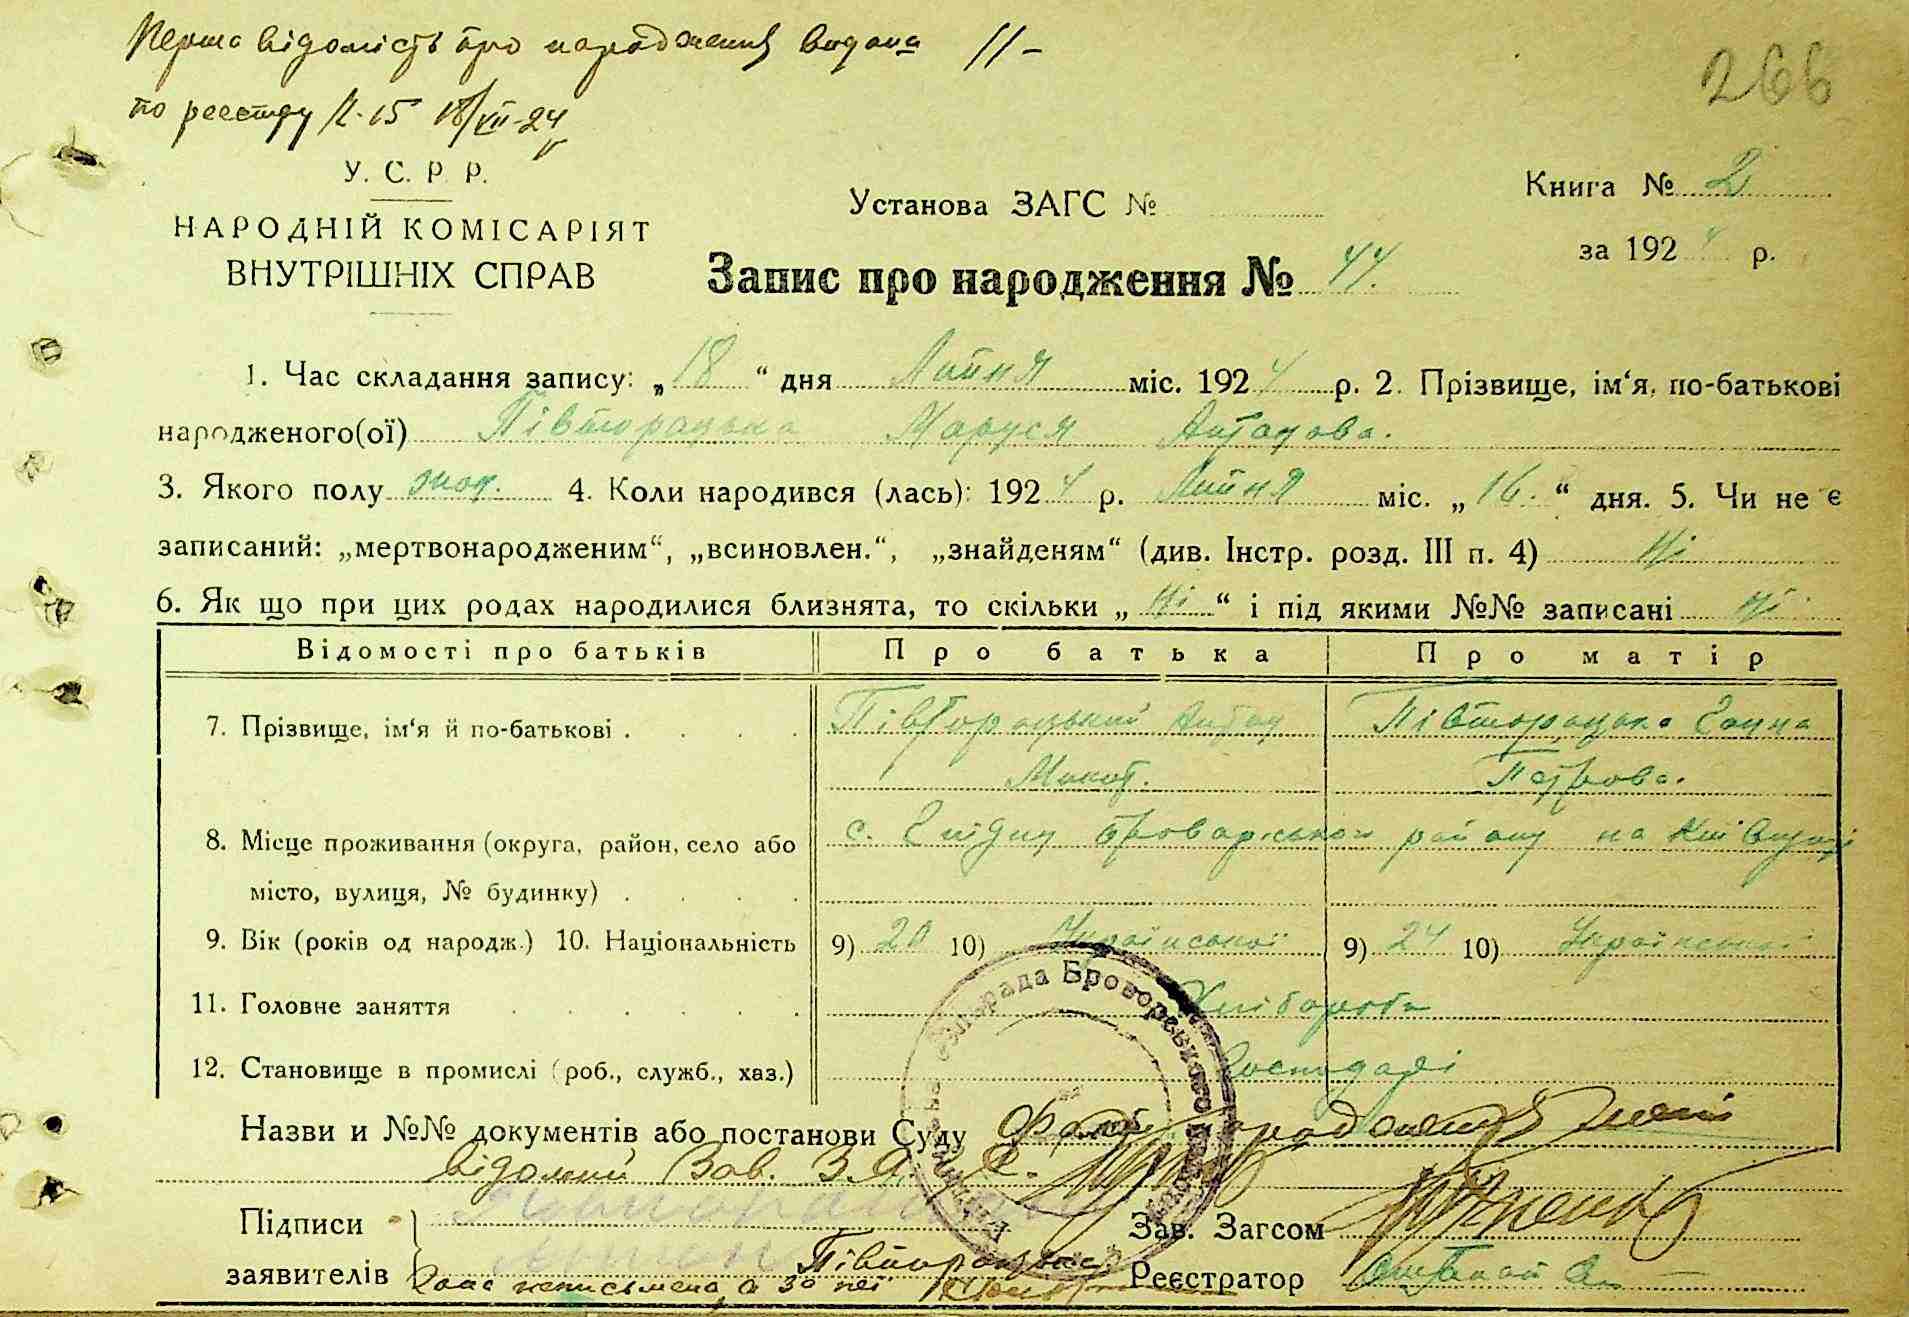 Перша відомість про народження видана 11-
по реєстру N. 15 18/VII-24
266
У. С. Р. Р.
НАРОДНІЙ КОМІСАРІЯТ
ВНУТРІШНІХ СПРАВ
Установа ЗАГС №
Книга № 2
за 1924 р.
Запис про народження № 44.
1. Час складання запису: „18“ дня Липня міс. 1924 р. 2. Прізвище, ім‘я, по-батькові
народженого(ої) Півторацька Маруся Антонова.
3. Якого полу жоч. 4. Коли народився (лась): 1924 р. Липня міс. „16.“ дня. 5. Чи не є
записаний: „мертвонародженим“, „всиновлен.“, „знайденям“ (див. Інстр. розд. III п. 4) Ні
6. Як що при цих родах народилися близнята, то скільки „Ні“ і під якими №№ записані Ні
Відомості про батьків Про батька Про матір
7. Прізвище, ім‘я й по-батькові . . . . Півторацький Антон Півторацька Ганна
Микит. Петрова.
8. Місце проживання (округа, район, село або с. Гнідин Броварського району на Київщині
місто, вулиця, № будинку) . . . .
9. Вік (років од народж.) 10. Національність 9) 20 10) Української 9) 24 10) Української
11. Головне заняття . . . . . . Хлібороби
12. Становище в промислі (роб., служб., хаз.) Господарі
Назви и №№ документів або постанови Суду Факт народження мені
відомий Зав. З.А.Г.С.
Підписи Півторацький Зав. Загсом
заявителів Антон Півторацька Реєстратор
Ганна неписьменна, а за неї